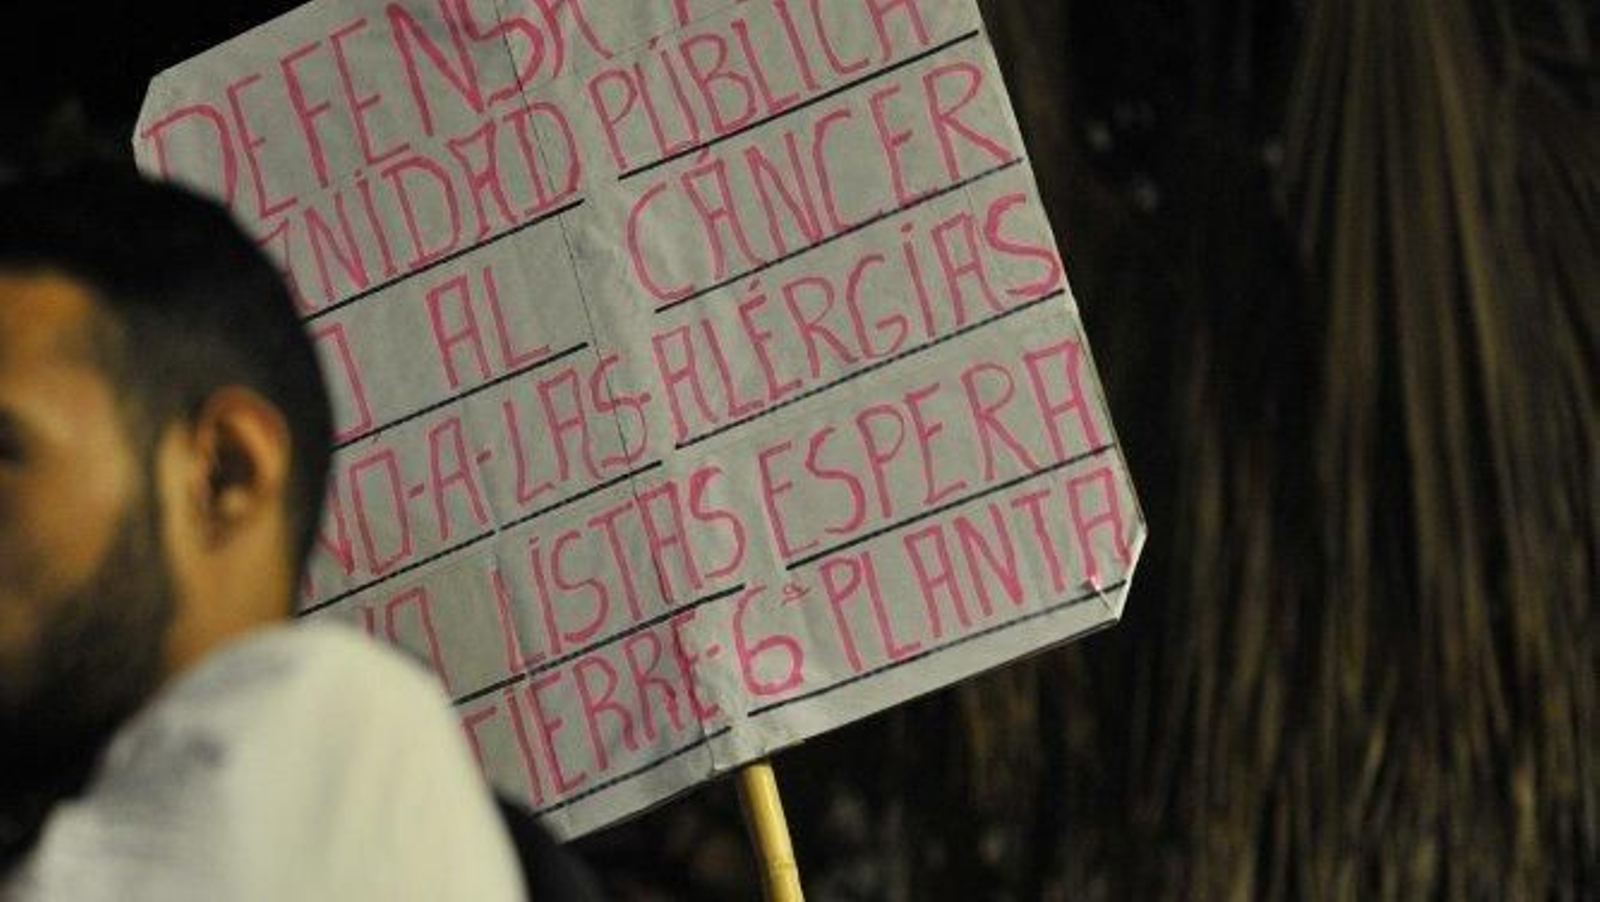 DEFENSA
PÚBLICA
AL CÁNCER
NO-A-LAS-ALÉRGIAS
NO LISTAS ESPERA
CIERRE-6ª PLANTA